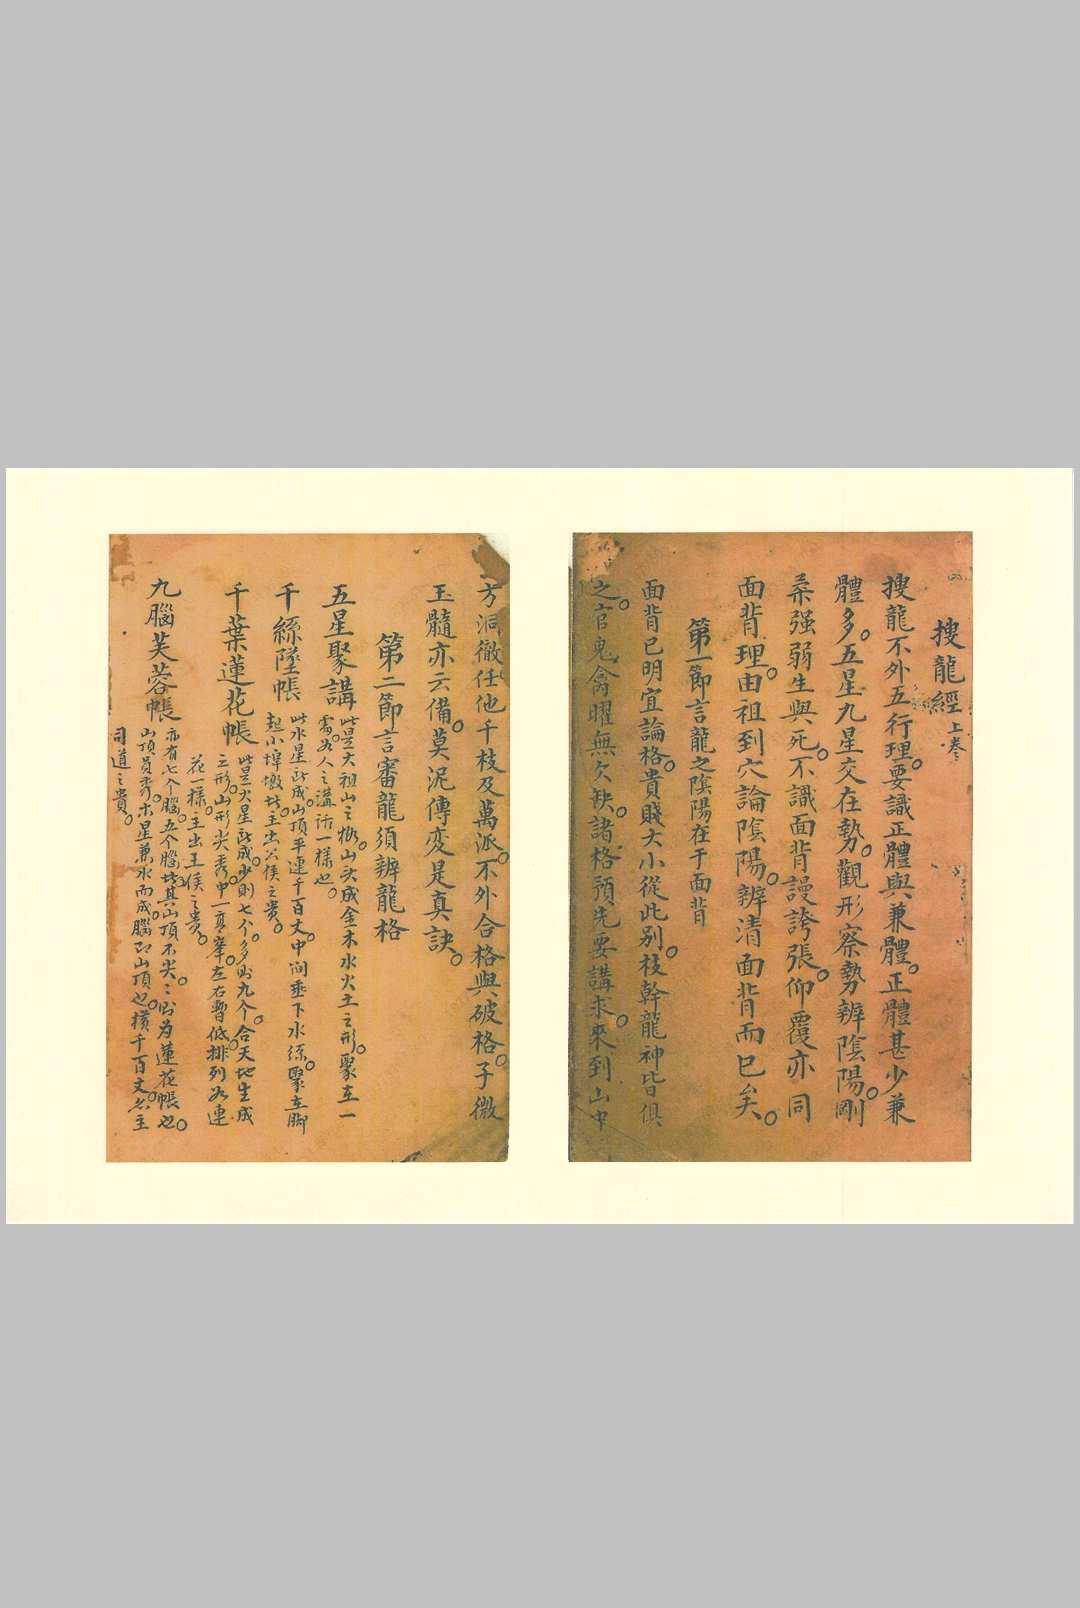 搜龍經上卷
搜龍不外五行理要識正體與兼體正體甚少兼
體多五星九星交在勢觀形察勢辨陰陽剛
柔强弱生與死不識面背謾誇張仰覆亦同
面背理由祖到穴論陰陽辨清面背而已矣
第一節言龍之陰陽在于面背
面背已明宜論格貴賤大小從此別枝幹龍神皆俱
之官鬼禽曜無欠缺諸格預先要講求來到山中
方洞徹任他千枝及萬派不外合格與破格子微
玉髓亦云備莫泥傳変是真訣
第二節言審龍須辨龍格
五星聚講 此是大祖山之格山头成金木水火土之形聚在一
處如人之講話一樣也
千絲墜帳 此水星所成山頂平連千百丈中间垂下水絲聚在脚
起小埠墩故主出公侯之贵
千葉蓮花帳 此是火星所成少則七个多則九个合天地生成
之形山形尖秀中一真峯左右暫低排列如連
花一樣主出王侯之贵
九腦芙蓉帳 亦有七个腦五个腦其山頂不尖尖則为蓮花帳也
山頂員秀木星兼水而成腦即山頂也横千百丈主
司道之貴